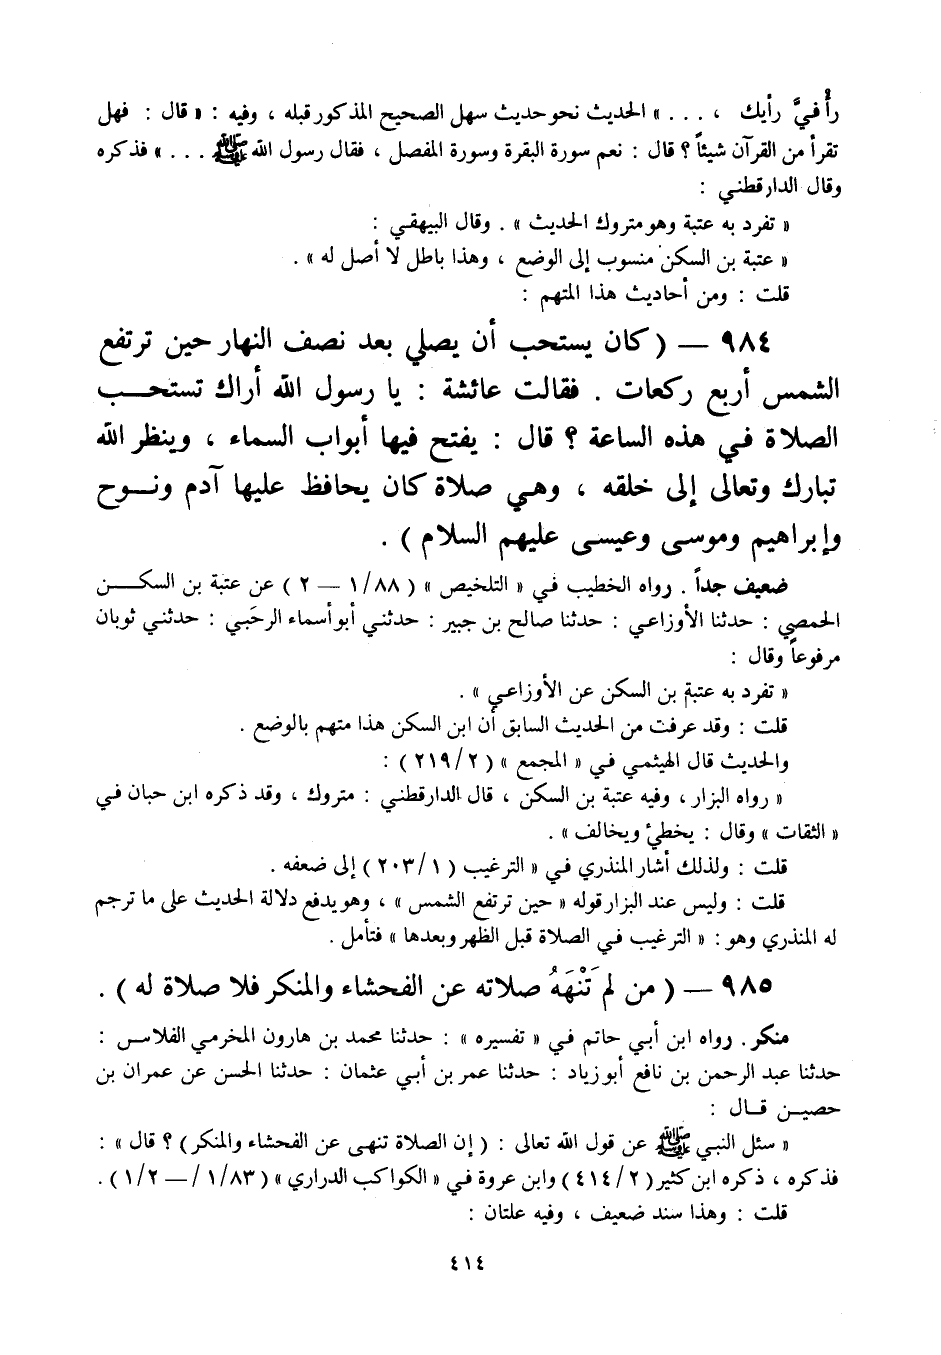 رأُ فيَّ رأيك ، . . . » الحديث نحو حديث سهل الصحيح المذكور قبله ، وفيه : « قال : فهل
تقرأ من القرآن شيئاً ؟ قال : نعم سورة البقرة وسورة المفصل ، فقال رسول الله ﷺ . . . » فذكره
وقال الدارقطني :
« تفرد به عتبة وهو متروك الحديث » . وقال البيهقي :
« عتبة بن السكن منسوب إلى الوضع ، وهذا باطل لا أصل له » .
قلت : ومن أحاديث هذا المتهم :
٩٨٤ – ( كان يستحب أن يصلي بعد نصف النهار حين ترتفع
الشمس أربع ركعات . فقالت عائشة : يا رسول الله أراك تستحب
الصلاة في هذه الساعة ؟ قال : يفتح فيها أبواب السماء ، وينظر الله
تبارك وتعالى إلى خلقه ، وهي صلاة كان يحافظ عليها آدم ونوح
وإبراهيم وموسى وعيسى عليهم السلام ) .
ضعيف جداً . رواه الخطيب في « التلخيص » ( ٨٨/ ١ – ٢ ) عن عتبة بن السكن
الحمصي : حدثنا الأوزاعي : حدثنا صالح بن جبير : حدثني أبو أسماء الرحَبي : حدثني ثوبان
مرفوعاً وقال :
« تفرد به عتبة بن السكن عن الأوزاعي » .
قلت : وقد عرفت من الحديث السابق أن ابن السكن هذا متهم بالوضع .
والحديث قال الهيثمي في « المجمع » ( ٢/ ٢١٩ ) :
« رواه البزار ، وفيه عتبة بن السكن ، قال الدارقطني : متروك ، وقد ذكره ابن حبان في
« الثقات » وقال : يخطئ ويخالف » .
قلت : ولذلك أشار المنذري في « الترغيب ( ١/ ٢٠٣ ) إلى ضعفه .
قلت : وليس عند البزار قوله « حين ترتفع الشمس » ، وهو يدفع دلالة الحديث على ما ترجم
له المنذري وهو : « الترغيب في الصلاة قبل الظهر وبعدها » فتأمل .
٩٨٥ – ( من لم تَنْهَهُ صلاته عن الفحشاء والمنكر فلا صلاة له ) .
منكر . رواه ابن أبي حاتم في « تفسيره » : حدثنا محمد بن هارون المخرمي الفلاس :
حدثنا عبد الرحمن بن نافع أبو زياد : حدثنا عمر بن أبي عثمان : حدثنا الحسن عن عمران بن
حصين قال :
« سئل النبي ﷺ عن قول الله تعالى : ( إن الصلاة تنهى عن الفحشاء والمنكر ) ؟ قال » :
فذكره ، ذكره ابن كثير ( ٢/ ٤١٤ ) وابن عروة في « الكواكب الدراري » ( ٨٣/ ١ / – ١/٢ ) .
قلت : وهذا سند ضعيف ، وفيه علتان :
٤١٤